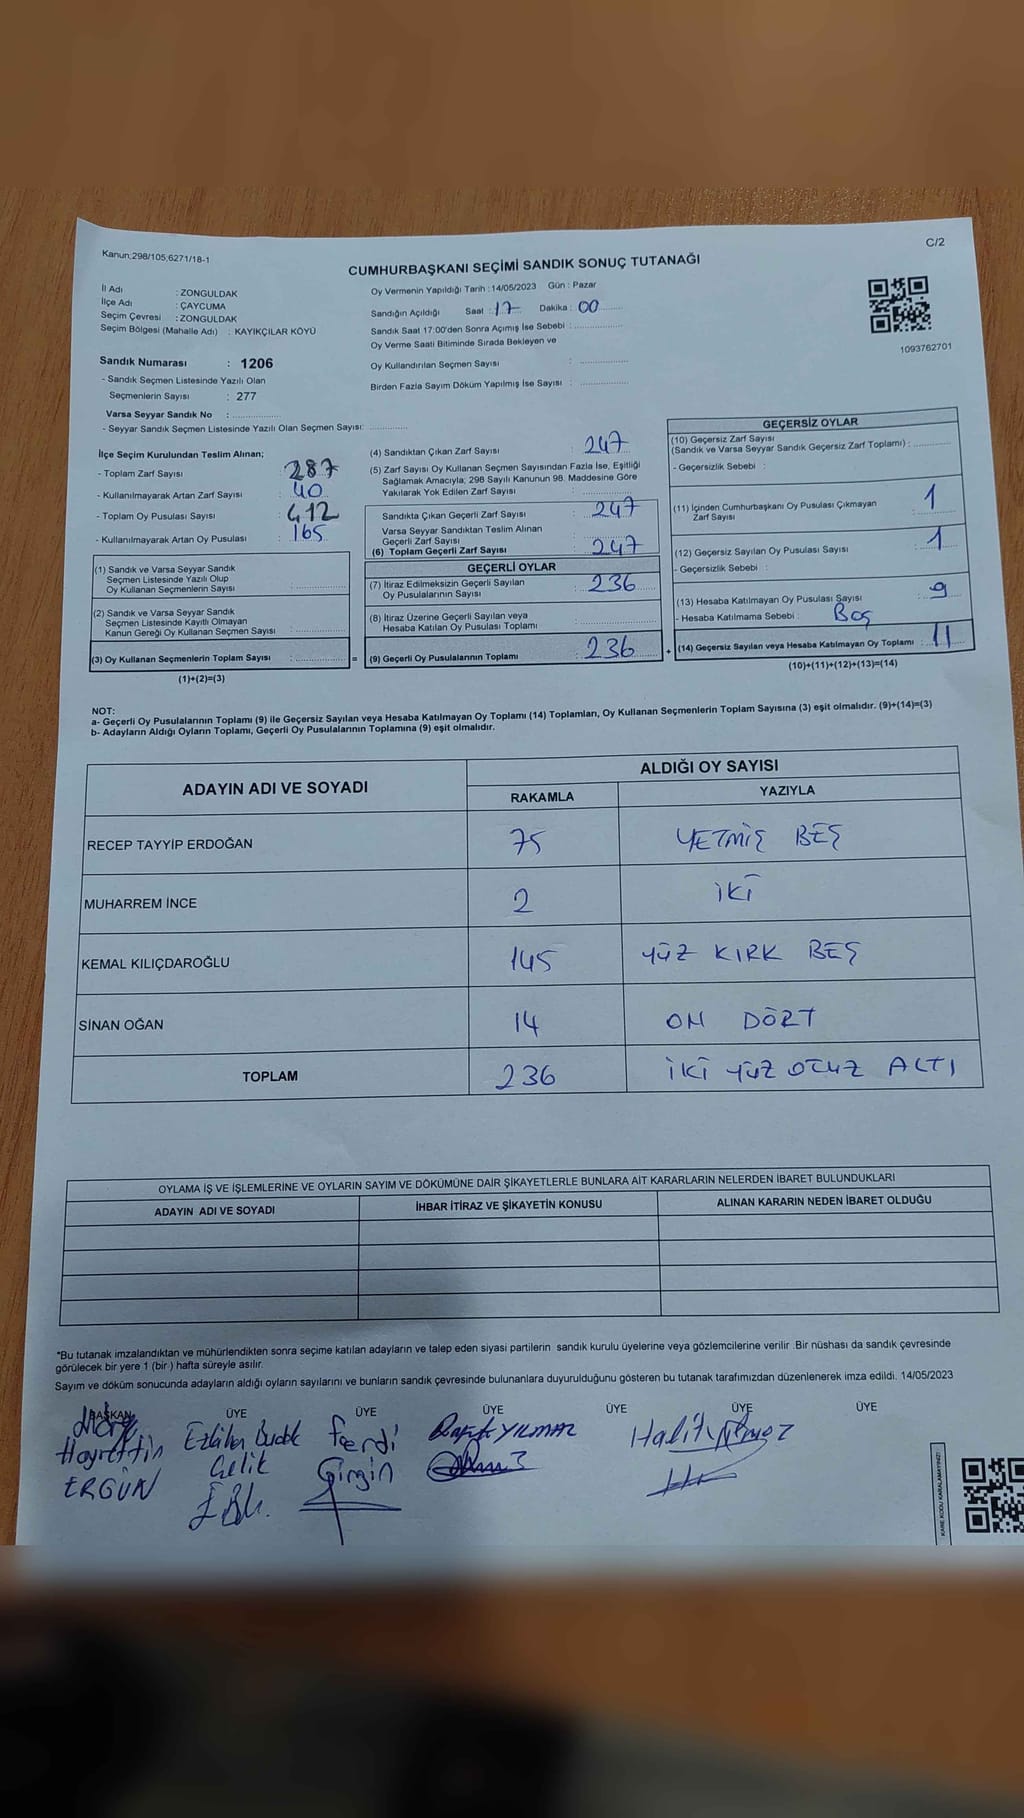 Kanun;298/105,6271/18-1
C/2
CUMHURBAŞKANI SEÇİMİ SANDIK SONUÇ TUTANAĞI
1093762701
İl Adı : ZONGULDAK
İlçe Adı : ÇAYCUMA
Seçim Çevresi : ZONGULDAK
Seçim Bölgesi (Mahalle Adı) : KAYIKÇILAR KÖYÜ
Sandık Numarası : 1206
- Sandık Seçmen Listesinde Yazılı Olan
Seçmenlerin Sayısı : 277
Varsa Seyyar Sandık No : ..............
- Seyyar Sandık Seçmen Listesinde Yazılı Olan Seçmen Sayısı: ............
Oy Vermenin Yapıldığı Tarih : 14/05/2023 Gün : Pazar
Sandığın Açıldığı Saat : 17 Dakika : 00
Sandık Saat 17:00'den Sonra Açımış İse Sebebi : ..............
Oy Verme Saati Bitiminde Sırada Bekleyen ve
Oy Kullandırılan Seçmen Sayısı : ..............
Birden Fazla Sayım Döküm Yapılmış İse Sayısı : ..............
İlçe Seçim Kurulundan Teslim Alınan;
- Toplam Zarf Sayısı : 287
- Kullanılmayarak Artan Zarf Sayısı : 40
- Toplam Oy Pusulası Sayısı : 412
- Kullanılmayarak Artan Oy Pusulası : 165
(1) Sandık ve Varsa Seyyar Sandık
Seçmen Listesinde Yazılı Olup
Oy Kullanan Seçmenlerin Sayısı : ..............
(2) Sandık ve Varsa Seyyar Sandık
Seçmen Listesinde Kayıtlı Olmayan
Kanun Gereği Oy Kullanan Seçmen Sayısı : ..............
(3) Oy Kullanan Seçmenlerin Toplam Sayısı : .............. =
(1)+(2)=(3)
(4) Sandıktan Çıkan Zarf Sayısı : 247
(5) Zarf Sayısı Oy Kullanan Seçmen Sayısından Fazla İse, Eşitliği
Sağlamak Amacıyla; 298 Sayılı Kanunun 98. Maddesine Göre
Yakılarak Yok Edilen Zarf Sayısı : ..............
Sandıkta Çıkan Geçerli Zarf Sayısı : 247
Varsa Seyyar Sandıktan Teslim Alınan
Geçerli Zarf Sayısı : ..............
(6) Toplam Geçerli Zarf Sayısı : 247
GEÇERLİ OYLAR
(7) İtiraz Edilmeksizin Geçerli Sayılan
Oy Pusulalarının Sayısı : 236
(8) İtiraz Üzerine Geçerli Sayılan veya
Hesaba Katılan Oy Pusulası Toplamı : ..............
(9) Geçerli Oy Pusulalarının Toplamı : 236 +
GEÇERSİZ OYLAR
(10) Geçersiz Zarf Sayısı
(Sandık ve Varsa Seyyar Sandık Geçersiz Zarf Toplamı) : ............
- Geçersizlik Sebebi :
(11) İçinden Cumhurbaşkanı Oy Pusulası Çıkmayan
Zarf Sayısı : 1
(12) Geçersiz Sayılan Oy Pusulası Sayısı : 1
- Geçersizlik Sebebi :
(13) Hesaba Katılmayan Oy Pusulası Sayısı : 9
- Hesaba Katılmama Sebebi : Boş
(14) Geçersiz Sayılan veya Hesaba Katılmayan Oy Toplamı : 11
(10)+(11)+(12)+(13)=(14)
NOT:
a- Geçerli Oy Pusulalarının Toplamı (9) ile Geçersiz Sayılan veya Hesaba Katılmayan Oy Toplamı (14) Toplamları, Oy Kullanan Seçmenlerin Toplam Sayısına (3) eşit olmalıdır. (9)+(14)=(3)
b- Adayların Aldığı Oyların Toplamı, Geçerli Oy Pusulalarının Toplamına (9) eşit olmalıdır.
ADAYIN ADI VE SOYADI
ALDIĞI OY SAYISI
RAKAMLA YAZIYLA
RECEP TAYYİP ERDOĞAN 75 YETMİŞ BEŞ
MUHARREM İNCE 2 İKİ
KEMAL KILIÇDAROĞLU 145 YÜZ KIRK BEŞ
SİNAN OĞAN 14 ON DÖRT
TOPLAM 236 İKİ YÜZ OTUZ ALTI
OYLAMA İŞ VE İŞLEMLERİNE VE OYLARIN SAYIM VE DÖKÜMÜNE DAİR ŞİKAYETLERLE BUNLARA AİT KARARLARIN NELERDEN İBARET BULUNDUKLARI
ADAYIN ADI VE SOYADI İHBAR İTİRAZ VE ŞİKAYETİN KONUSU ALINAN KARARIN NEDEN İBARET OLDUĞU
*Bu tutanak imzalandıktan ve mühürlendikten sonra seçime katılan adayların ve talep eden siyasi partilerin sandık kurulu üyelerine veya gözlemcilerine verilir .Bir nüshası da sandık çevresinde
görülecek bir yere 1 (bir ) hafta süreyle asılır.
Sayım ve döküm sonucunda adayların aldığı oyların sayılarını ve bunların sandık çevresinde bulunanlara duyurulduğunu gösteren bu tutanak tarafımızdan düzenlenerek imza edildi. 14/05/2023
BAŞKAN ÜYE ÜYE ÜYE ÜYE ÜYE ÜYE
Hayrettin
ERGÜN
Çelik
Ferdi
Girgin
YILMAZ
Halit
KARE KODU KARALAMAYINIZ!